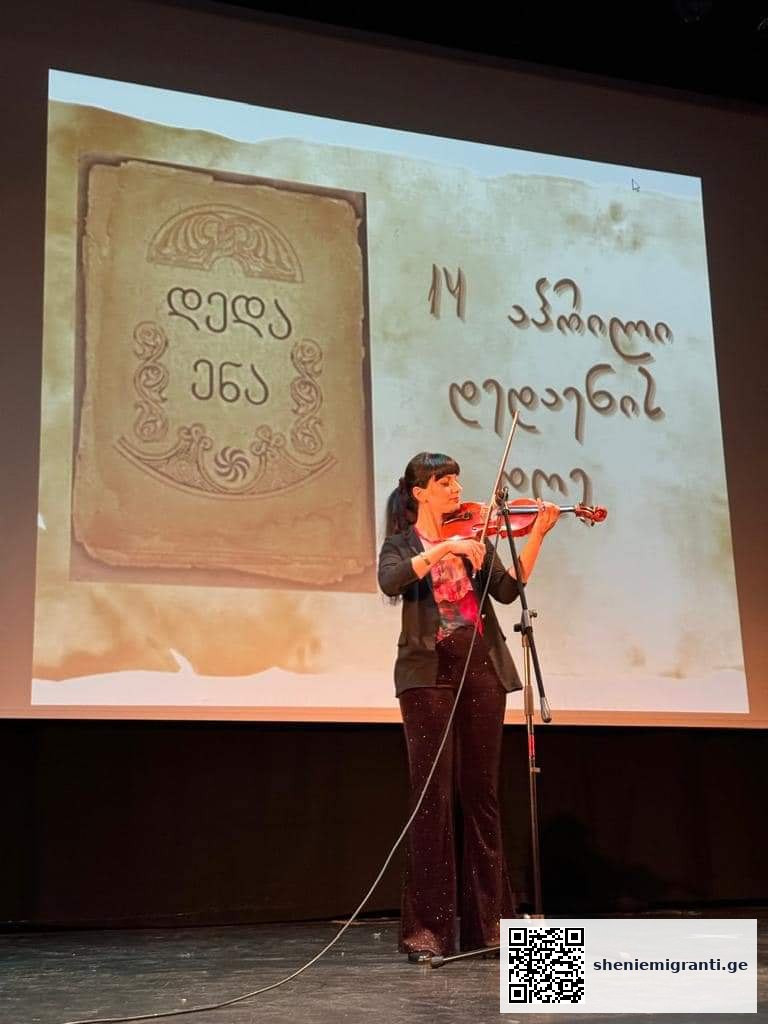 დედა
ენა
14 აპრილი
დედაენის
დღე
sheniemigranti.ge